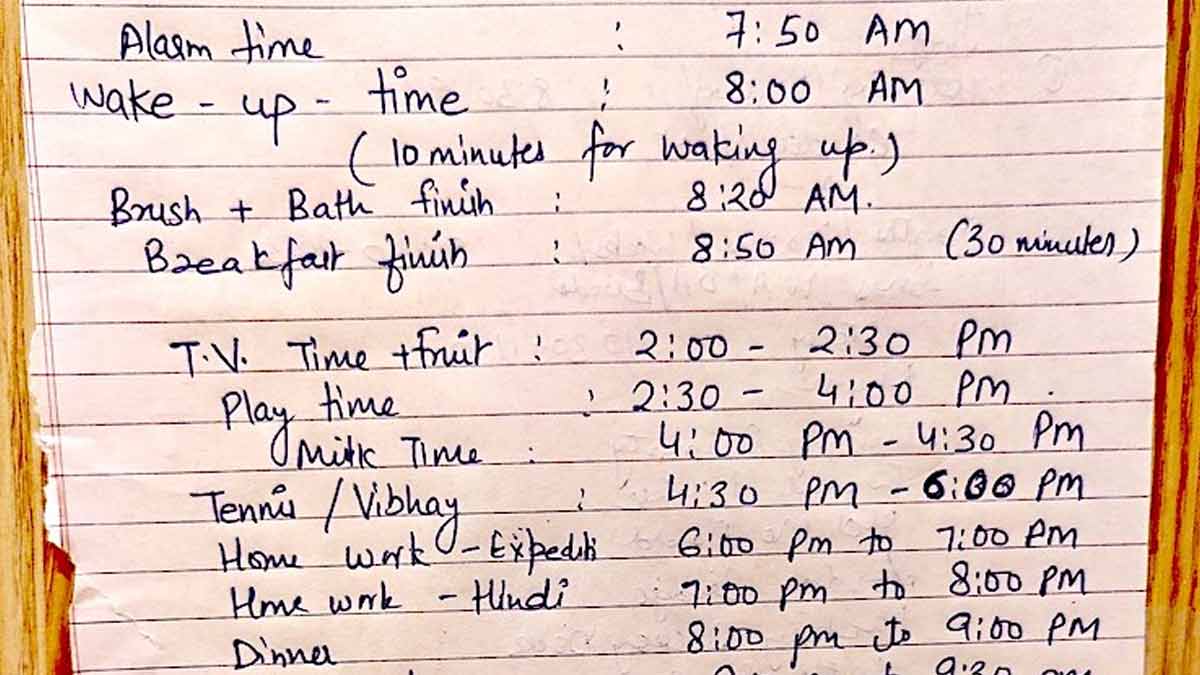 Alarm time : 7:50 AM
Wake - up - time : 8:00 AM
( 10 minutes for waking up.)
Brush + Bath finish : 8:20 AM.
Breakfast finish : 8:50 AM (30 minutes)
T.V. Time + fruit : 2:00 - 2:30 PM
Play time : 2:30 - 4:00 PM .
Milk Time : 4:00 PM - 4:30 PM
Tennis / Vibhay : 4:30 PM - 6:00 PM
Home work - 6:00 Pm to 7:00 PM
Home work - Hindi : 7:00 pm to 8:00 PM
Dinner 8:00 pm to 9:00 PM
9:30 pm